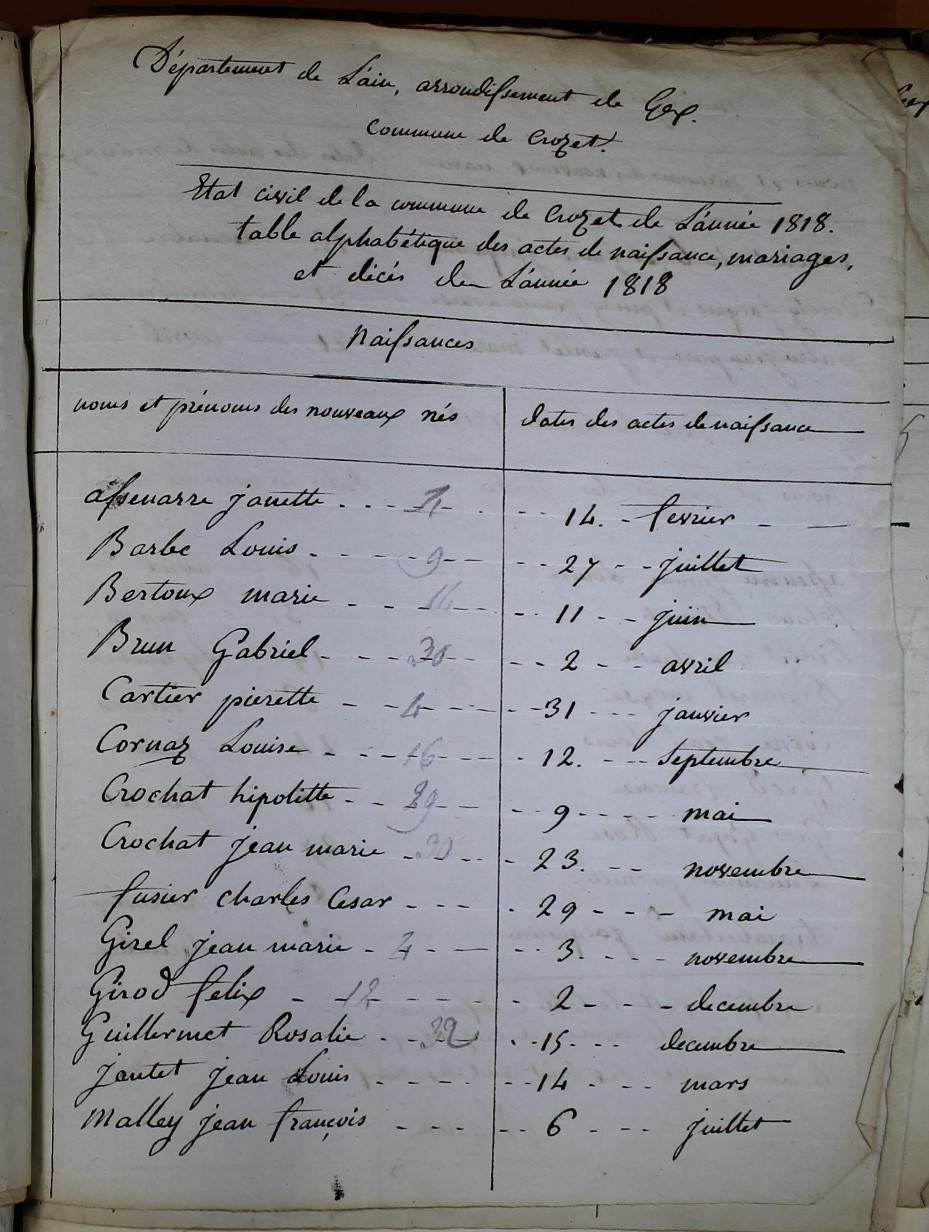 Département de L'ain, arrondissement de Gex.
Commune de Crozet.
Etat civil de la commune de Crozet de L'année 1818.
table alphabétique des actes de naissance, mariages,
et décés de L'année 1818
Naissances
noms et prénoms des nouveaux nés dates des actes de naissance
assenarre janette 14. fevrier
Barbe Louis 9 27 juillet
Bertoux marie 14 11 juin
Brun Gabriel 30 2 avril
Cartier pierette 4 31 janvier
Cornaz Louise 16 12. Septembre
Crochat hipolitte 29 9 mai
Crochat jean marie 30 23. novembre
fusier charles Cesar 29 mai
Girel jean marie 2 3. novembre
Girod felix 12 2 decembre
Guillermet Rosalie 32 15 decembre
jantet jean Louis 14 mars
Malley jean françois 6 juillet